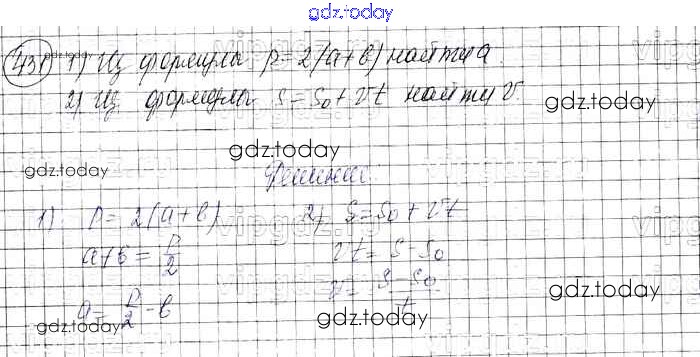 gdz.today
431 1) Из формулы p = 2(a+b) найти a
2) Из формулы s = s₀ + vt найти v.
gdz.today
gdz.today
gdz.today
Решение:
1) p = 2(a+b) 2) s = s₀ + vt
a+b = p/2 vt = s - s₀
a = p/2 - b v = (s - s₀)/t
gdz.today
gdz.today
gdz.today